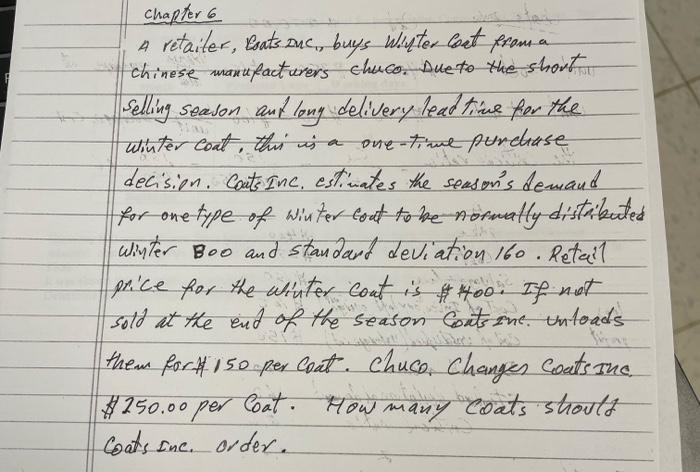 Chapter 6
A retailer, Coats Inc., buys Winter Coat from a
Chinese manufacturers chuco. Due to the short
Selling season and long delivery lead time for the
winter coat, this is a one-time purchase
decision. Coats Inc. estimates the season's demand
for one type of winter coat to be normally distributed
winter 800 and standard deviation 160. Retail
price for the winter coat is $400. If not
sold at the end of the season Coats Inc. unloads
them for $150 per Coat. Chuco. Changes Coats Inc.
$250.00 per Coat. How many Coats should
Coats Inc. order.